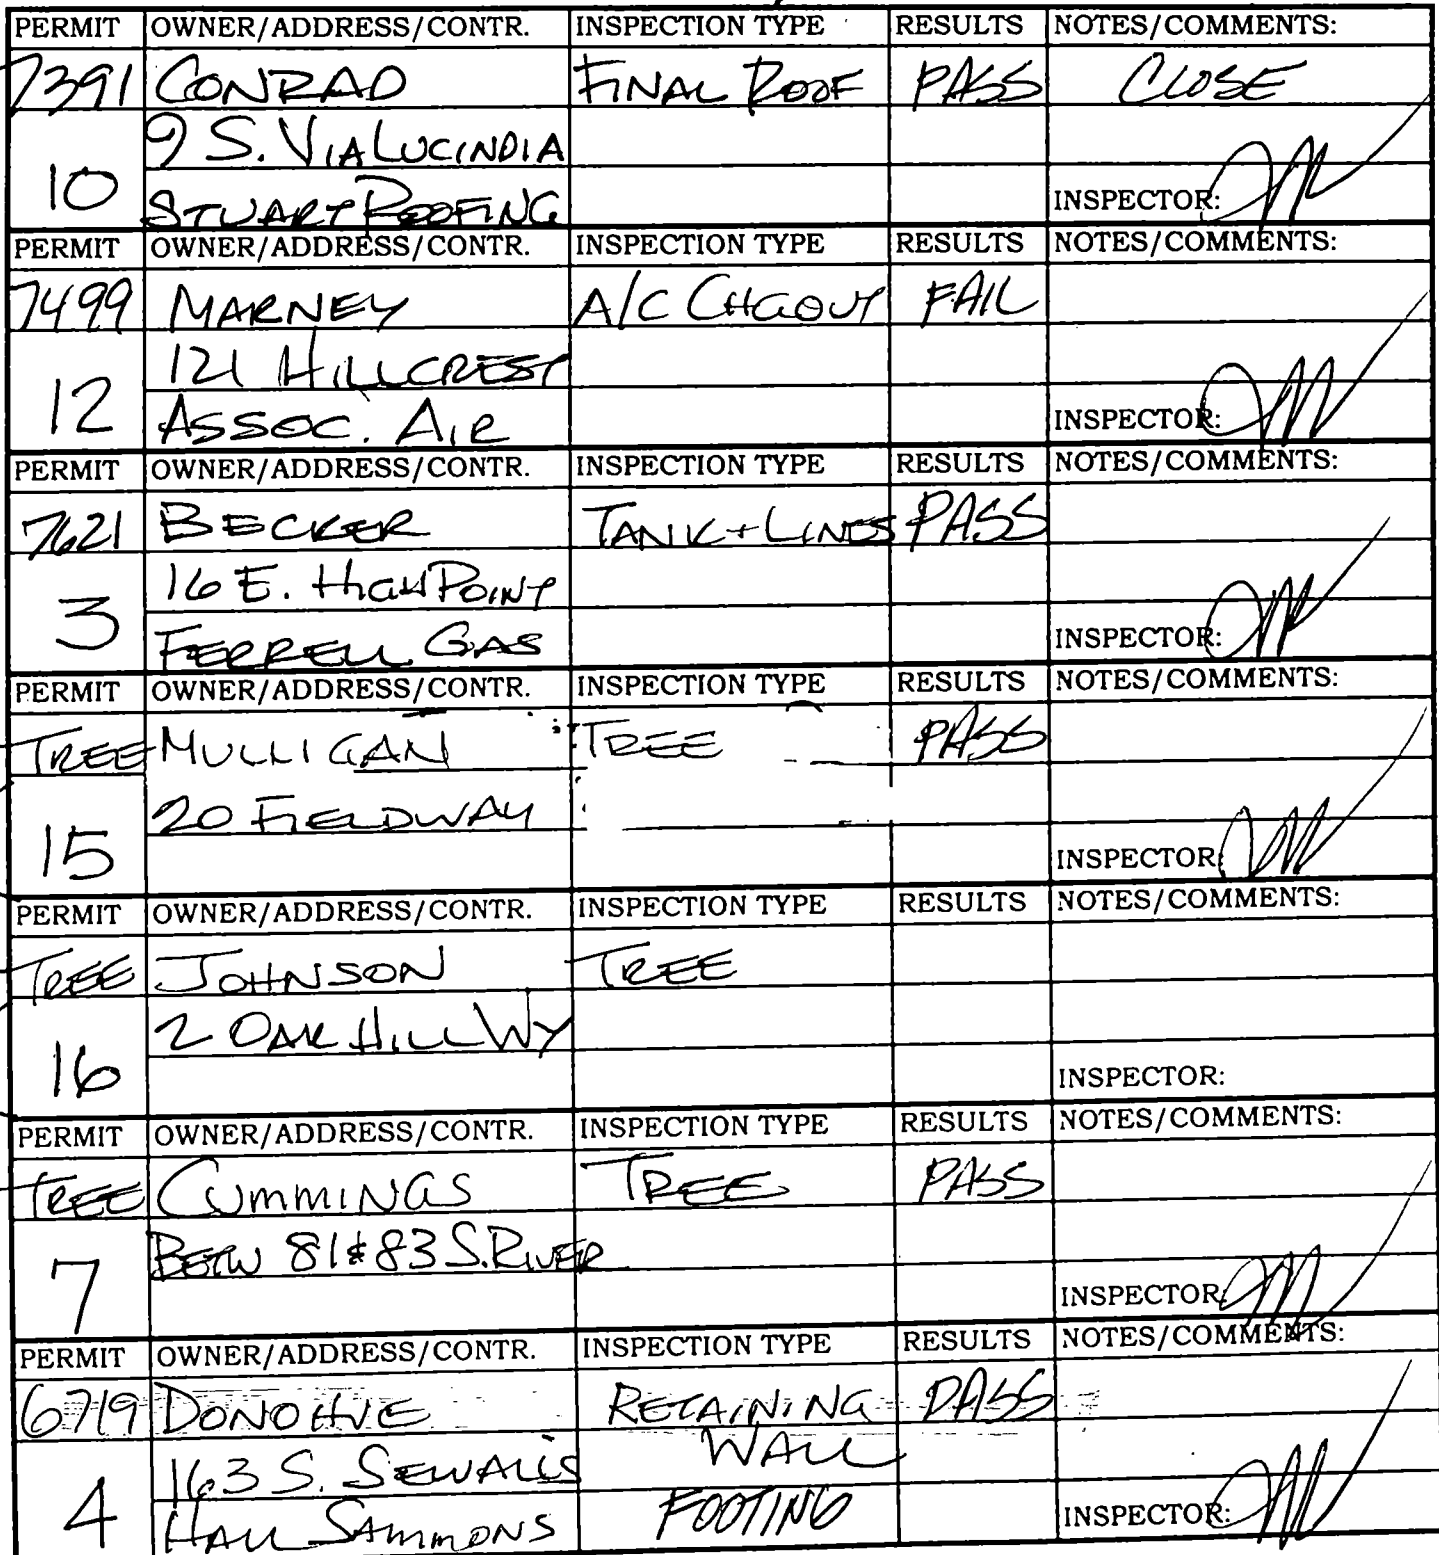 PERMIT OWNER/ADDRESS/CONTR. INSPECTION TYPE RESULTS NOTES/COMMENTS:
7391 CONRAD FINAL ROOF PASS CLOSE
9 S. VIA LUCINDIA
10 STUART ROOFING INSPECTOR:
PERMIT OWNER/ADDRESS/CONTR. INSPECTION TYPE RESULTS NOTES/COMMENTS:
7499 MARNEY A/C CHGOUT FAIL
121 HILLCREST
12 ASSOC. AIR INSPECTOR:
PERMIT OWNER/ADDRESS/CONTR. INSPECTION TYPE RESULTS NOTES/COMMENTS:
7621 BECKER TANK + LINES PASS
16 E. HIGH POINT
3 FERRELL GAS INSPECTOR:
PERMIT OWNER/ADDRESS/CONTR. INSPECTION TYPE RESULTS NOTES/COMMENTS:
TREE MULLIGAN TREE PASS
20 FIELDWAY
15 INSPECTOR:
PERMIT OWNER/ADDRESS/CONTR. INSPECTION TYPE RESULTS NOTES/COMMENTS:
TREE JOHNSON TREE
2 OAK HILL WY
16 INSPECTOR:
PERMIT OWNER/ADDRESS/CONTR. INSPECTION TYPE RESULTS NOTES/COMMENTS:
TREE CUMMINGS TREE PASS
BETW 81 & 83 S. RIVER
7 INSPECTOR:
PERMIT OWNER/ADDRESS/CONTR. INSPECTION TYPE RESULTS NOTES/COMMENTS:
6719 DONOHUE RETAINING PASS
163 S. SEWALLS WALL
4 HALL SAMMONS FOOTING INSPECTOR: